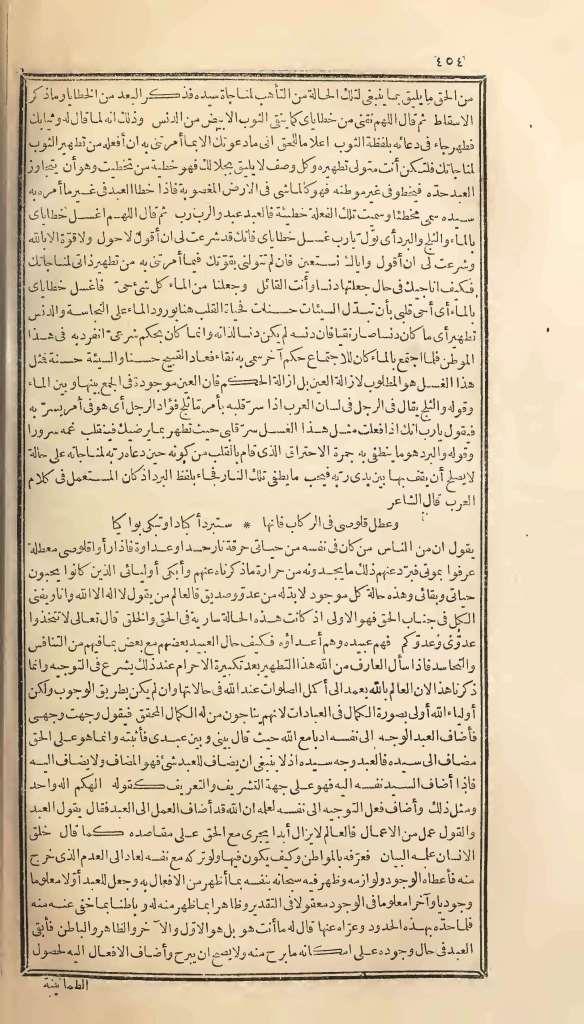 ٤٥٤
من الحق ما يليق بما ينبغى لتلك الحالة من التأهب لمناجاة سيده فذكر البعد من الخطايا وما ذكر
الاسقاط ثم قال اللهم نقنى من خطاياى كما ينقى الثوب الابيض من الدنس وذلك انه لما قال له وثيابك
فطهر جاء فى دعائه بلفظة الثوب اعلاما للحق انى ما دعوتك الا بما أمرتنى به ان أفعله من تطهير الثوب
لمناجاتك فلتكن أنت متولى تطهيره وكل وصف لا يليق بجلالك فهو خطية من تخطيت وهو أن يتجاوز
العبد حده فيخطو فى غير موطنه فهو كالماشى فى الارض المغصوبة فاذا خطا العبد فى غير ما أمره به
سيده سمى مخطئا وسميت تلك الفعلة خطيئة فالعبد عبد والرب رب ثم قال اللهم اغسل خطاياى
بالماء والثلج والبرد أى تولّ يا رب غسل خطاياى فانك قد شرعت لى ان أقول لا حول ولا قوة الا بالله
وشرعت لى ان أقول واياك نستعين فان لم تتولنى بقوّتك فيما أمرتنى به من تطهير ذاتى لمناجاتك
فكيف اناجيك فى حال جعلتها دنسا وأنت القائل وجعلنا من الماء كل شئ حىّ فاغسل خطاياى
بالماء أى أحى قلبى بأن تبدّل السيئات حسنات فحياة القلب هنا بورود الماء على النجاسة والدنس
تطهير أى ما كان دنسا صار نقيا فان دنسه لم يكن دنسا لذاته وانما كان بحكم شرعىّ انفرد به فى هذا
الموطن فلما اجتمع بالماء كان للاجتماع حكم آخر سمى به نقاء فعاد القبيح حسنا والسيئة حسنة فمثل
هذا الغسل هو المطلوب لازالة العين بل ازالة الحكم فان العين موجودة فى الجمع بينها وبين الماء
وقوله والثلج يقال فى الرجل فى لسان العرب اذا سرّ قلبه بأمر ما ثلج فؤاد الرجل أى هو فى أمر يسرّ به
فيقول يا رب انك اذا فعلت مثل هذا الغسل سرّ قلبى حيث تطهر بما يرضيك فينقلب غمه سرورا
وقوله والبرد هو ما ينطفى به جمرة الاحتراق الذى قام بالقلب من كونه حين دعاه ربه لمناجاته على حالة
لا يصلح أن يقف بها بين يدى ربه فيحب ما يطفى تلك النار فجاء بلفظ البرد اذ كان المستعمل فى كلام
العرب قال الشاعر
وعطل قلوصى فى الركاب فانها * ستبرد أكبادا وتبكى بواكيا
يقول ان من الناس من كان فى نفسه من حياتى حرقة نار حسدا وعداوة فاذا رأوا قلوصى معطلة
عرفوا بموتى فبرد عنهم ذلك ما يجدونه من حرارة ما ذكرناه عنهم وأبكى أوليائى الذين كانوا يحبون
حياتى وبقائى وهذه حالة كل موجود لا بد له من عدوّ وصديق فالعالم من يقول لا اله الا الله وانا ويفنى
الكل فى جناب الحق فهو الاولى اذ كانت هذه الحالة سارية فى الحق والخلق قال تعالى لا تتخذوا
عدوّى وعدوّكم فهم عبيده وهم أعداؤه فكيف حال العبيد بعضهم مع بعض بما فيهم من التنافس
والتحاسد فاذا سأل العارف من الله هذا التطهير بعد تكبيرة الاحرام عند ذلك يشرع فى التوجيه وانما
ذكرنا هذا لان العالم بالله يعمد الى أكمل الصلوات عند الله فى حالاتها وان لم يكن بطريق الوجوب ولكن
أولياء الله أولى بصورة الكمال فى العبادات لانهم يناجون من له الكمال المحقق فيقول وجهت وجهى
فأضاف العبد الوجه الى نفسه ادبا مع الله حيث قال بينى وبين عبدى فأثبته وانما هو على الحق
مضاف الى سيده فالعبد وجه سيده اذ لا ينبغى ان يضاف للعبد شئ فهو المضاف ولا يضاف اليه
فاذا أضاف السيد نفسه اليه فهو على جهة التشريف والتعريف كقوله الهكم اله واحد
ومثل ذلك وأضاف فعل التوجيه الى نفسه لعله ان الله قد أضاف العمل الى العبد فقال يقول العبد
والقول عمل من الاعمال فالعالم لا يزال أبدا يجرى مع الحق على مقاصده كما قال خلق
الانسان علمه البيان فعرّفه بالمواطن وكيف يكون فيها ولو تركه مع نفسه لعاد الى العدم الذى خرج
منه فأعطاه الوجود ولوازمه وظهر فيه سبحانه بنفسه بما أظهر من الافعال به وجعل للعبد أوّلا معلوما
وجوديا وآخرا معلوما فى الوجود معقولا فى التقدير وظاهرا بما ظهر منه له وباطنا بما خفى عنه منه
فلما حدّه بهذه الحدود وعرّاه عنها قال له ما أنت هو بل هو الاوّل والآخر والظاهر والباطن فأبقى
العبد فى حال وجوده على امكانه ما برح منه ولا يصح ان يبرح وأضاف الافعال اليه لحصول
الطمأنينة